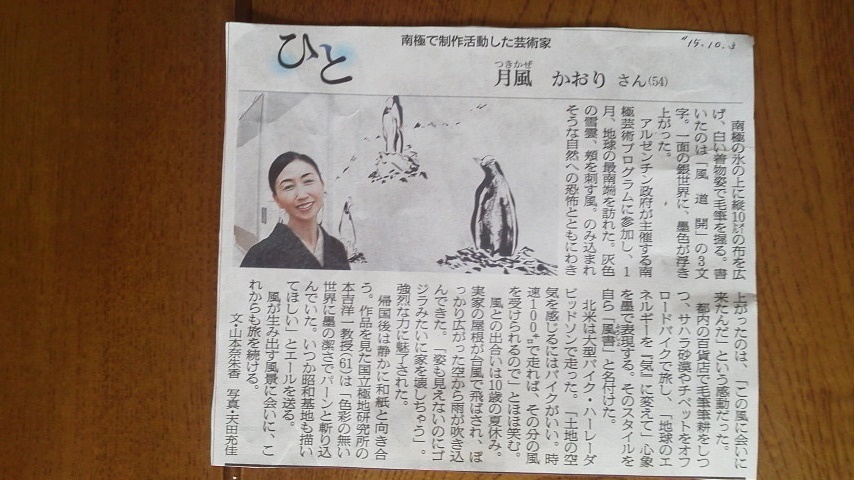 ひと
南極で制作活動した芸術家
'15.10.3
つきかぜ
月風 かおり さん(54)
南極の氷の上に縦10㍍の布を広
げ、白い着物姿で毛筆を握る。書
いたのは「風 道 開」の3文
字。一面の銀世界に、墨色が浮き
上がった。
アルゼンチン政府が主催する南
極芸術プログラムに参加し、1
月、地球の最南端を訪れた。灰色
の雪雲、頰を刺す風。のみ込まれ
そうな自然への恐怖とともにわき
上がったのは、「この風に会いに
来たんだ」という感動だった。
都内の百貨店で毛筆筆耕をしつ
つ、サハラ砂漠やチベットをオフ
ロードバイクで旅し、「地球のエ
ネルギーを『気』に変えて」心象
を墨で表現する。そのスタイルを
自ら「風書」と名付けた。
北米は大型バイク・ハーレーダ
ビッドソンで走った。「土地の空
気を感じるにはバイクがいい。時
速100㌔で走れば、その分の風
を受けられるので」とほほ笑む。
風との出合いは10歳の夏休み。
実家の屋根が台風で飛ばされ、ぽ
っかり広がった空から雨が吹き込
んできた。「姿も見えないのにゴ
ジラみたいに家を壊しちゃう」。
強烈な力に魅了された。
帰国後は静かに和紙と向き合
う。作品を見た国立極地研究所の
本吉洋一教授(61)は「色彩の無い
世界に墨の潔さでパーンと斬り込
んでいた。いつか昭和基地も描い
てほしい」とエールを送る。
風が生み出す風景に会いに、こ
れからも旅を続ける。
文・山本奈朱香 写真・天田充佳